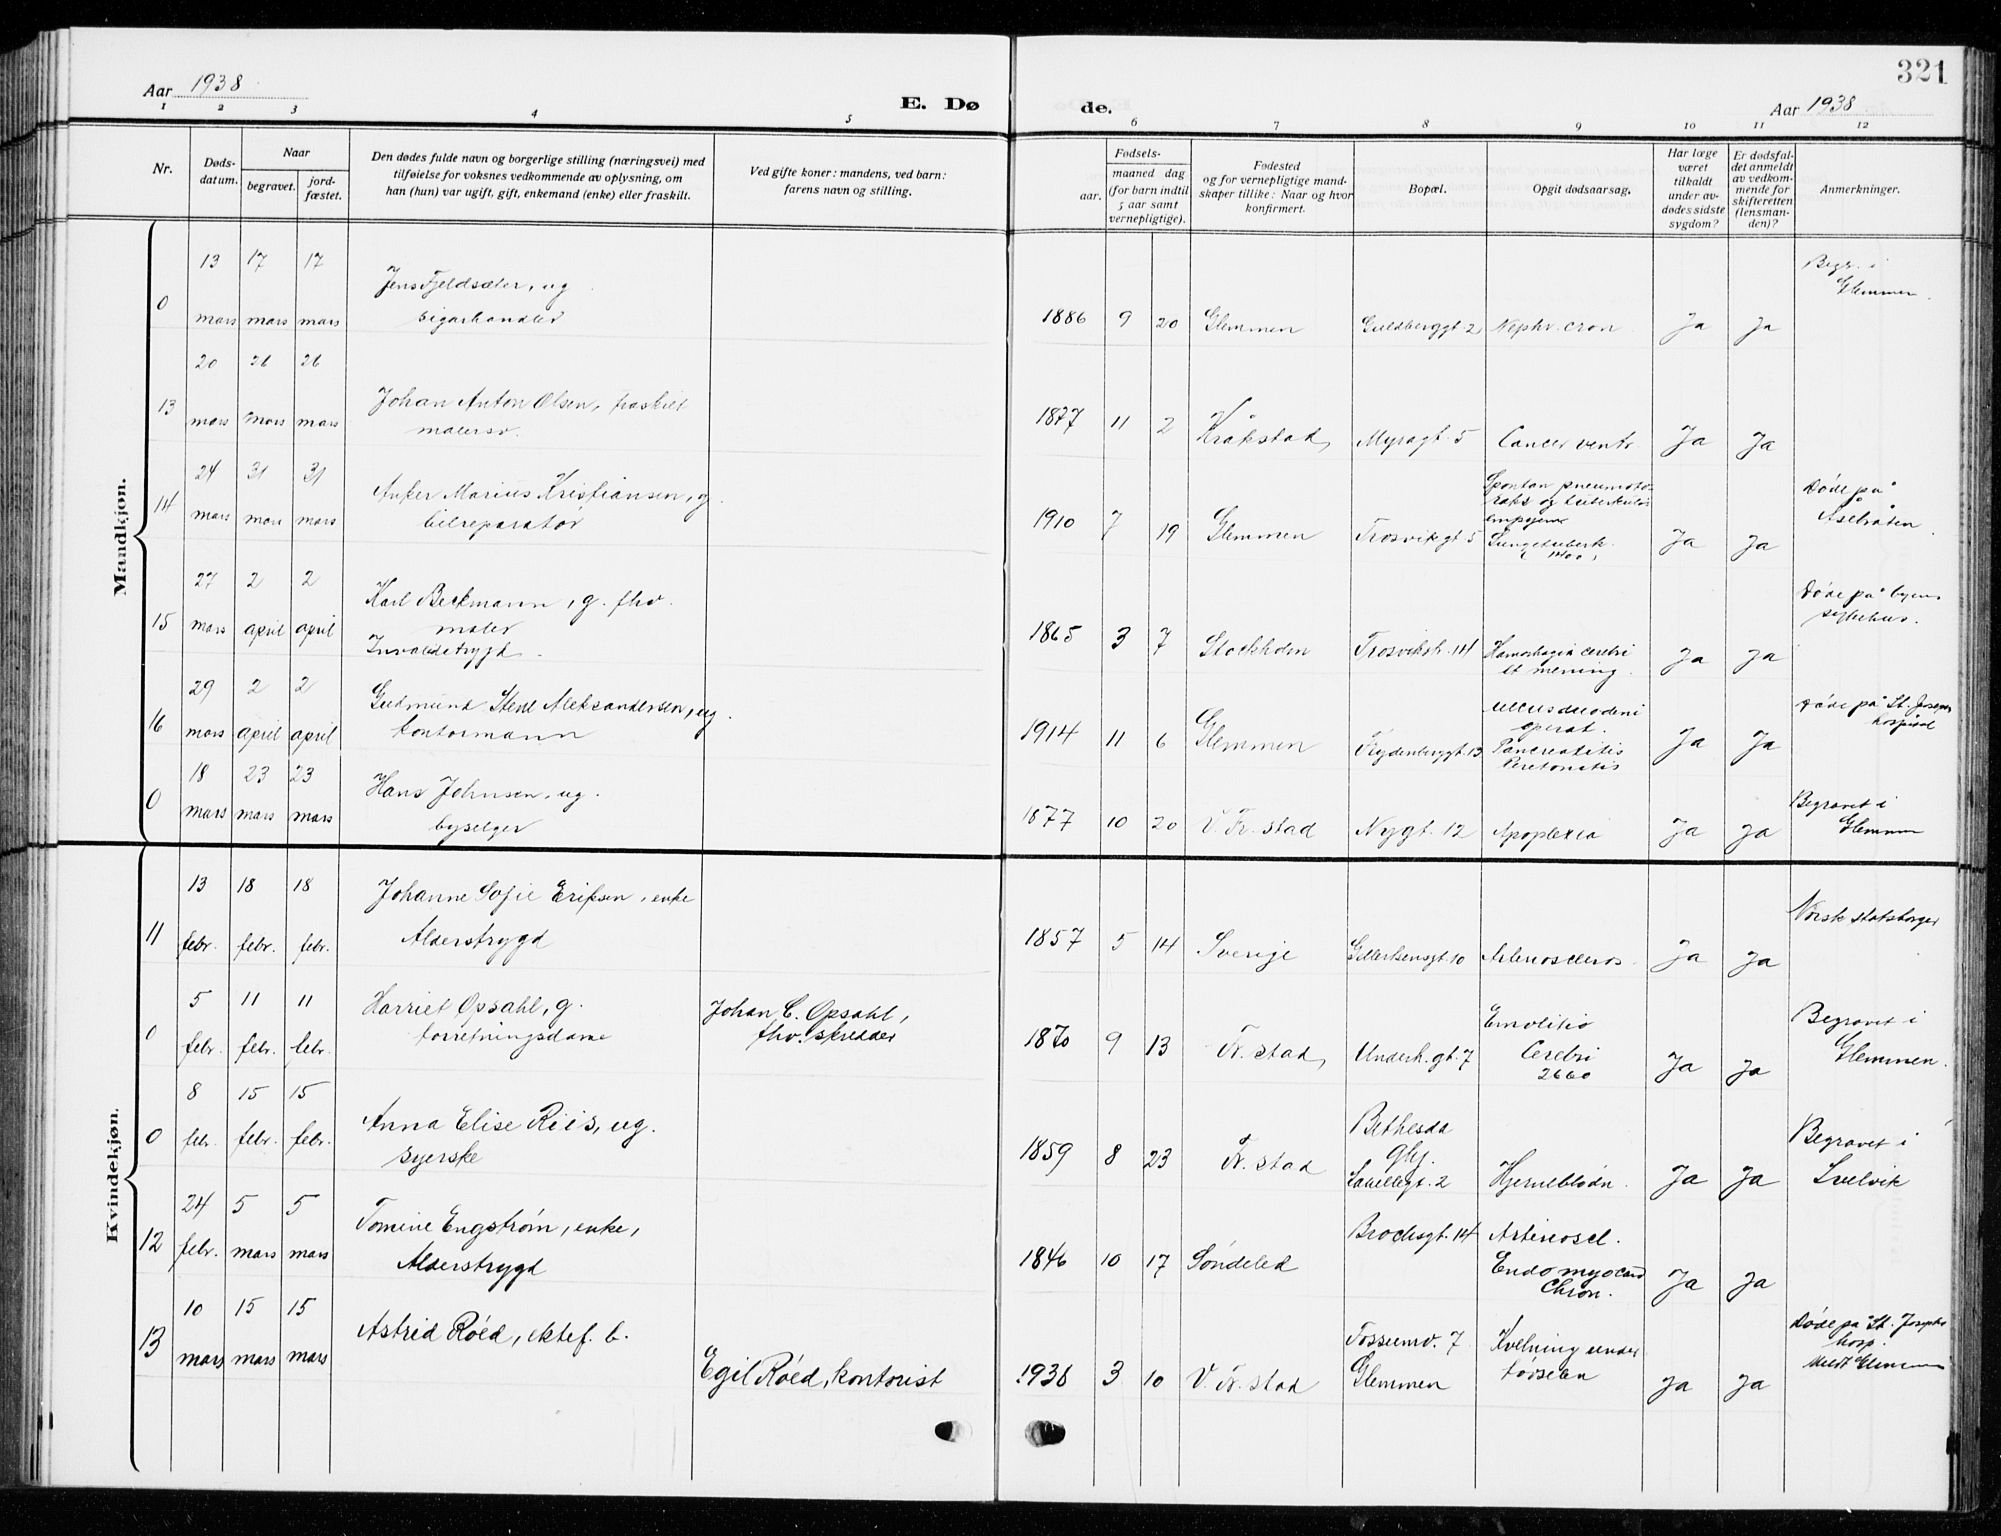 Aar 1938
E. Dø
de.
Aar 1938
321
1 2 3 4 5 6 7 8 9 10 11 12
Nr.
Døds-
datum.
Naar
begravet.
jord-
fæstet.
Den dødes fulde navn og borgerlige stilling (næringsvei) med
tilføielse for voksnes vedkommende av oplysning, om
han (hun) var ugift, gift, enkemand (enke) eller fraskilt.
Ved gifte koner: mandens, ved barn:
farens navn og stilling.
Fødsels-
aar. maaned dag
(for barn indtil
5 aar samt
vernepligtige).
Fødested
og for vernepligtige mand-
skaper tillike: Naar og hvor
konfirmert.
Bopæl.
Opgit dødsaarsag.
Har læge
været
tilkaldt
under av-
dødes sidste
sygdom?
Er dødsfal-
det anmeldt
av vedkom-
mende for
skifteretten
(lensman-
den)?
Anmerkninger.
Mandkjøn.
13 17 17 Begr. i
0 Jens Fjeldsæter, ug Glemmen
mars mars mars sigarhandler 1886 9 20 Glemmen Guldberggt. 2 Nephr. cron Ja Ja
20 26 26
13 Johan Anton Olsen, fraskilt
mars mars mars malersv. 1877 11 2 Kråkstad, Myragt. 5 Cancer ventr. Ja Ja
24 31 31 Spontan pneumoto- Døde på
14 Anker Marius Kristiansen, g raks og tuberkuløs Åsebråten
mars mars mars bilreparatør 1910 7 19 Glemmen Trosvikgt 5 empyem Ja Ja
Lungetuberk.
27 2 2 Døde på byens
15 Karl Beckmann, g. fhv. sykehus.
mars april april maler 1865 3 7 Stockholm Trosvikstr. 14 Hæmorhagia cerebri Ja Ja
Invalidetrygd. et mening.
29 2 2 Ulcus duodeni Døde på St. Josephs
16 Gudmund Stene Aleksandersen, ug. operat. hospital
mars april april kontormann 1914 11 6 Glemmen Frydenberggt. 13 Pancreatitis Ja Ja
Peretonitis
18 23 23 Begravet i
0 Hans Johnsen, ug. Glemmen
mars mars mars byselger 1877 10 20 V. Fr.stad Nygt. 12 Apoplexia Ja Ja
Kvindekjøn.
13 18 18 Johanne Sofie Eriksen, enke Norsk statsborger
11 febr. febr. febr. Alderstrygd 1857 5 14 Sverige Gillertsensgt. 10 Arterioscleros. Ja Ja
5 11 11 Harriet Opsahl, g. Johan C. Opsahl, Emolitio Begravet i
0 febr. febr. febr. forretningsdame fhv. skredder 1870 9 13 Fr.stad, Underh.gt. 7 Cerebri Ja Ja Glemmen.
2660
8 15 15 Anna Elise Riis, ug. Bethesda Begravet i
0 febr. febr. febr. syerske 1859 8 23 Fr.stad Glhj. Hjerneblødn. Ja Ja Svelvik
24 5 5 Tomine Engstrøm, enke, Brochsgt. 14 Arteriosel.
12 febr. mars mars Alderstrygd 1846 10 17 Søndeled Endo myocard Ja Ja
Chron.
10 15 15 Astrid Røed, ektef. b. Tossumv. 7 Kvelning under Døde på St. Josephs
13 mars mars mars Egil Røed, kontorist 1938 3 10 V. Fr.stad Glemmen fødselen Ja Ja hosp.
Meldt Glemmen